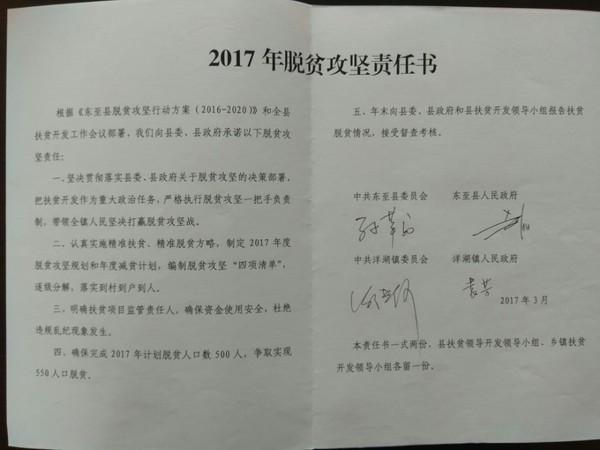 2017 年脱贫攻坚责任书
根据《东至县脱贫攻坚行动方案（2016-2020）》和全县
扶贫开发工作会议部署，我们向县委、县政府承诺以下脱贫攻
坚责任：
一、坚决贯彻落实县委、县政府关于脱贫攻坚的决策部署，
把扶贫开发作为重大政治任务，严格执行脱贫攻坚一把手负责
制，带领全镇人民坚决打赢脱贫攻坚战。
二、认真实施精准扶贫、精准脱贫方略，制定 2017 年度
脱贫攻坚规划和年度减贫计划，编制脱贫攻坚“四项清单”，
逐级分解，落实到村到户到人。
三、明确扶贫项目监管责任人，确保资金使用安全，杜绝
违规乱纪现象发生。
四、确保完成 2017 年计划脱贫人口数 500 人，争取实现
550 人口脱贫。
五、年末向县委、县政府和县扶贫开发领导小组报告扶贫
脱贫情况，接受督查考核。
中共东至县委员会 东至县人民政府
中共洋湖镇委员会 洋湖镇人民政府
2017 年 3 月
本责任书一式两份，县扶贫领导开发领导小组、乡镇扶贫
开发领导小组各留一份。